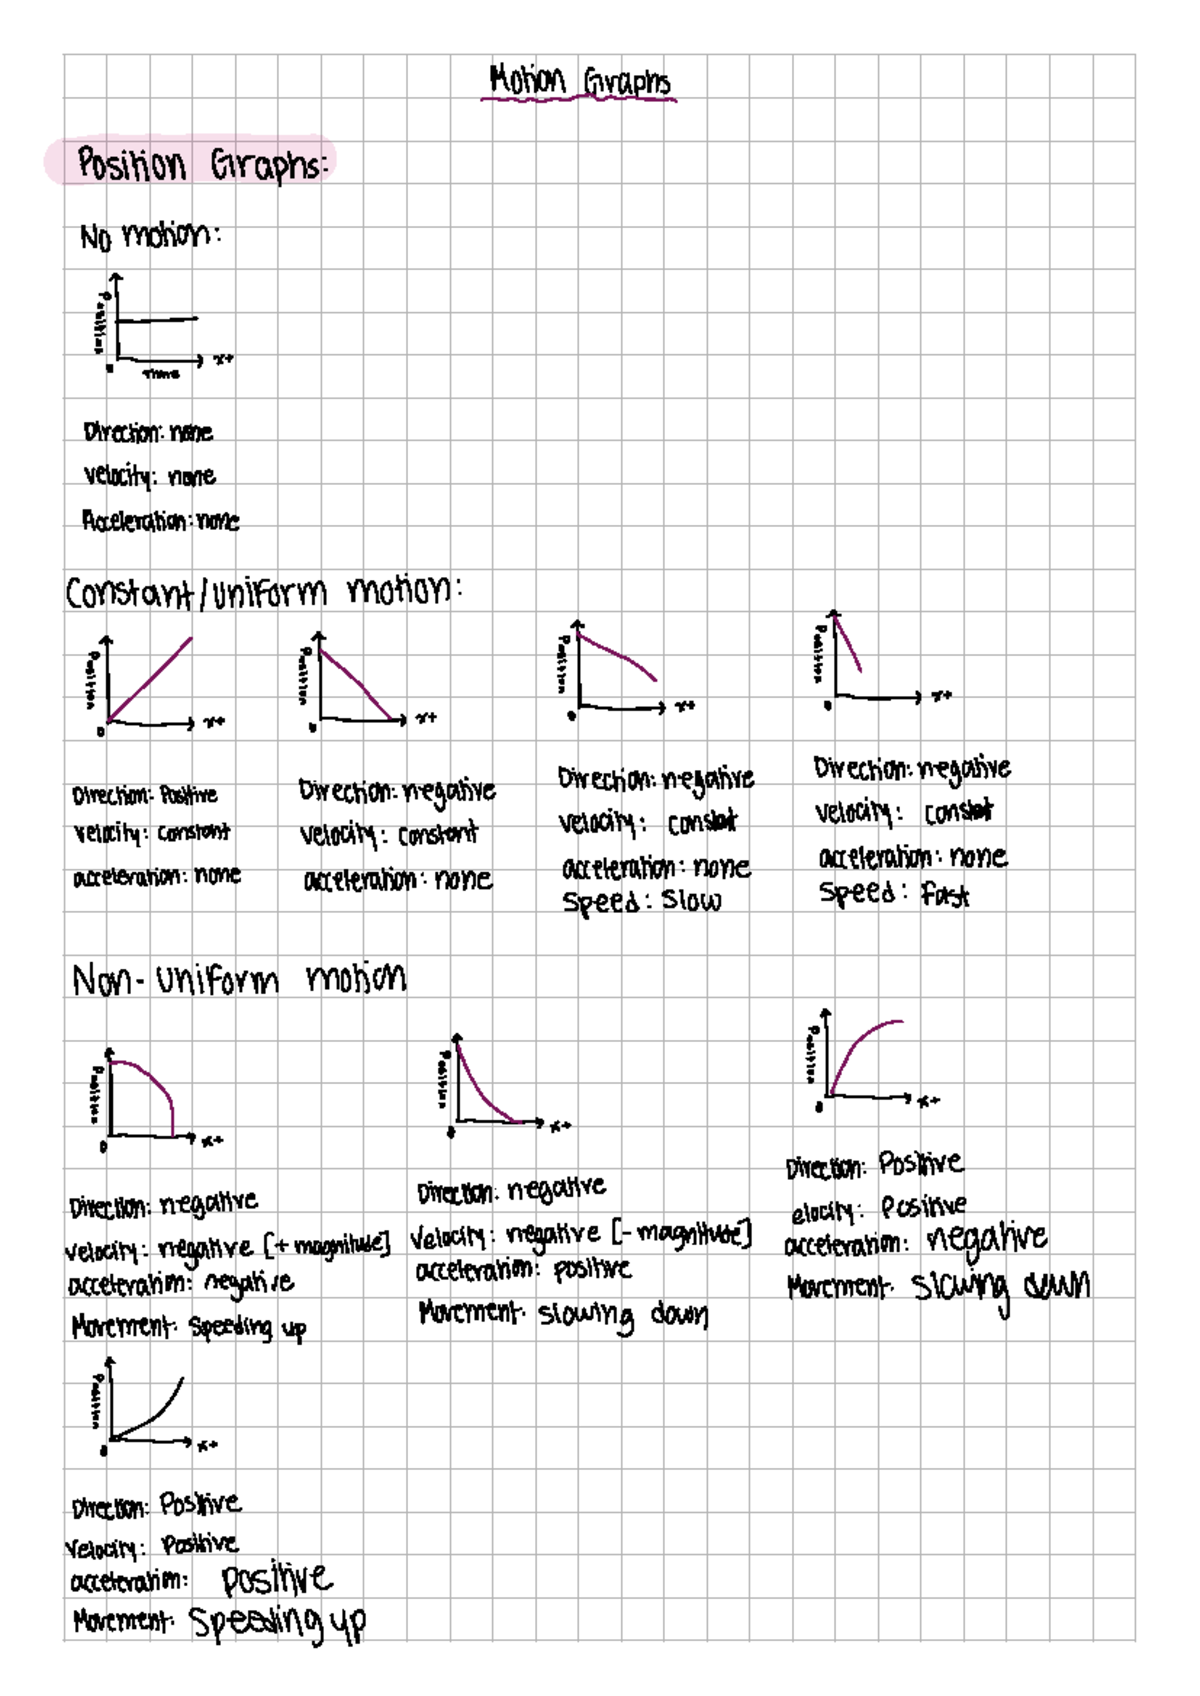 Motion Graphs
Position Graphs:
No motion:
Position
0
Time
x+
Direction: none
velocity: none
Acceleration: none
Constant/uniform motion:
Position
0
x+
Direction: Positive
velocity: constant
acceleration: none
Position
0
x+
Direction: negative
velocity: constant
acceleration: none
Position
0
x+
Direction: negative
velocity:
acceleration: none
Speed: Slow
Position
x+
Direction: negative
velocity:
acceleration: none
Speed: fast
Non-uniform motion
Position
0
x+
Direction: negative
velocity: negative [+ magnitude]
acceleration: negative
Movement: Speeding up
Position
0
x+
Direction: negative
velocity: negative [- magnitude]
acceleration: positive
Movement: slowing down
Position
0
x+
Direction: Positive
elocity: Positive
acceleration: negative
Movement: slowing down
Position
0
x+
Direction: Positive
velocity: Positive
acceleration: positive
Movement: Speeding up